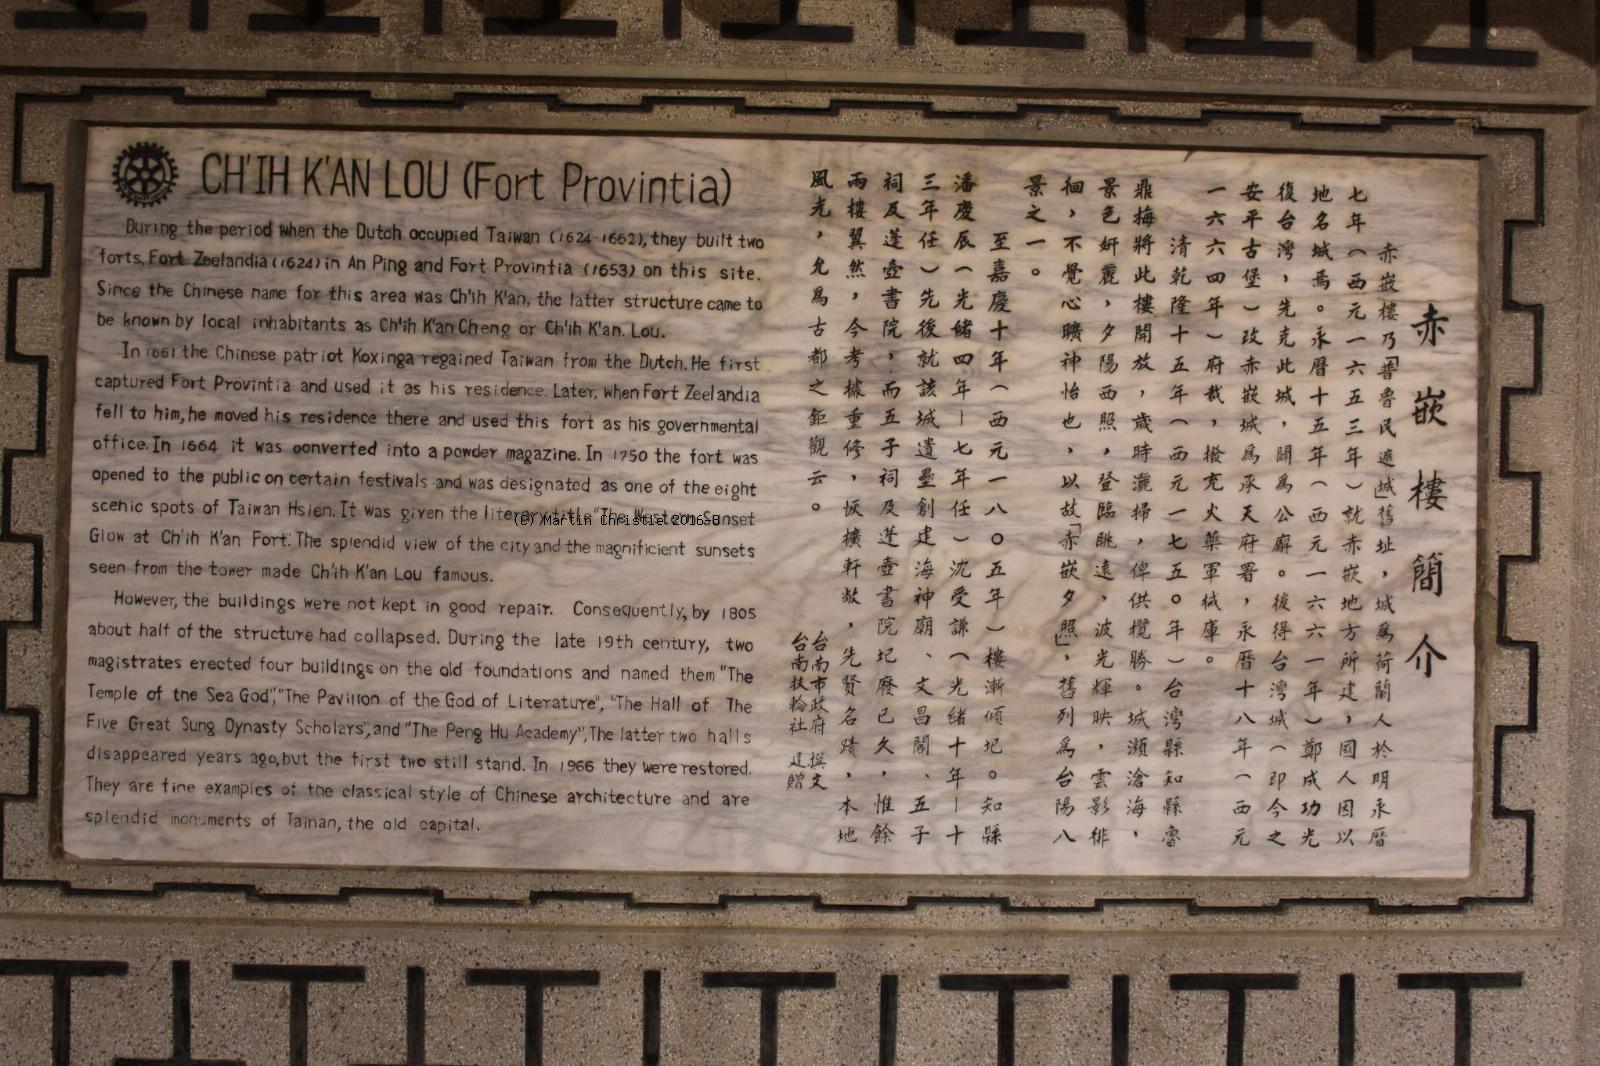 CH'IH K'AN LOU (Fort Provintia)
During the period when the Dutch occupied Taiwan (1624-1662), they built two
forts, Fort Zeelandia (1624) in An Ping and Fort Provintia (1653) on this site.
Since the Chinese name for this area was Ch'ih K'an, the latter structure came to
be known by local inhabitants as Ch'ih K'an Cheng or Ch'ih K'an. Lou.
In 1661 the Chinese patriot Koxinga regained Taiwan from the Dutch. He first
captured Fort Provintia and used it as his residence. Later, when Fort Zeelandia
fell to him, he moved his residence there and used this fort as his governmental
office. In 1664 it was oonverted into a powder magazine. In 1750 the fort was
opened to the public on certain festivals and was designated as one of the eight
scenic spots of Taiwan Hsien. It was given the literary title "The Western Sunset
Glow at Ch'ih K'an Fort". The splendid view of the city and the magnificient sunsets
seen from the tower made Ch'ih K'an Lou famous.
However, the buildings were not kept in good repair. Consequently, by 1805
about half of the structure had collapsed. During the late 19th century, two
magistrates erected four buildings on the old foundations and named them "The
Temple of the Sea God", "The Pavilion of the God of Literature", "The Hall of The
Five Great Sung Dynasty Scholars", and "The Peng Hu Academy", The latter two halls
disappeared years ago, but the first two still stand. In 1966 they were restored.
They are fine examples of the classical style of Chinese architecture and are
splendid monuments of Tainan, the old capital.
赤嵌樓簡介
赤嵌樓乃「普魯民遮城」舊址,城為荷蘭人於明永曆
七年(西元一六五三年)就赤嵌地方所建,國人因以
地名城焉。永曆十五年(西元一六六一年)鄭成功光
復台灣,先克此城,闢為公廨。後得台灣城(即今之
安平古堡)改赤嵌城為承天府署,永曆十八年(西元
一六六四年)府裁,撥充火藥軍械庫。
清乾隆十五年(西元一七五○年)台灣縣知縣魯
鼎梅將此樓開放,歲時灑掃,俾供攬勝。城瀕滄海,
景色妍麗,夕陽西照,登臨眺遠,波光輝映,雲影徘
徊,不覺心曠神怡也,以故「赤嵌夕照」,舊列為台陽八
景之一。
至嘉慶十年(西元一八○五年)樓漸傾圮。知縣
潘慶辰(光緒四年—七年任)沈受謙(光緒十年—十
三年任)先後就該城遺壘創建海神廟、文昌閣、五子
祠及蓬壺書院,而五子祠及蓬壺書院圮廢已久,惟餘
兩樓翼然,今考據重修,恢擴軒敞,先賢名蹟,本地
風光,允為古都之鉅觀云。
台南市政府 撰文
台南扶輪社 建贈
(C) Martin Christie 2016-8